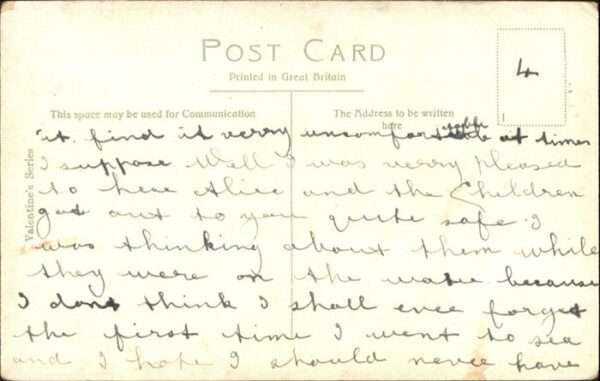 POST CARD
Printed in Great Britain
4
This space may be used for Communication
The Address to be written
here
Valentine's Series
it. find it verry uncomfortable at times
I suppose Well I was verry pleased
to hear Alice and the Children
got out to you quite safe. I
was thinking about them while
they were on the water because
I dont think I shall ever forget
the first time I went to sea
and I hope I should never have